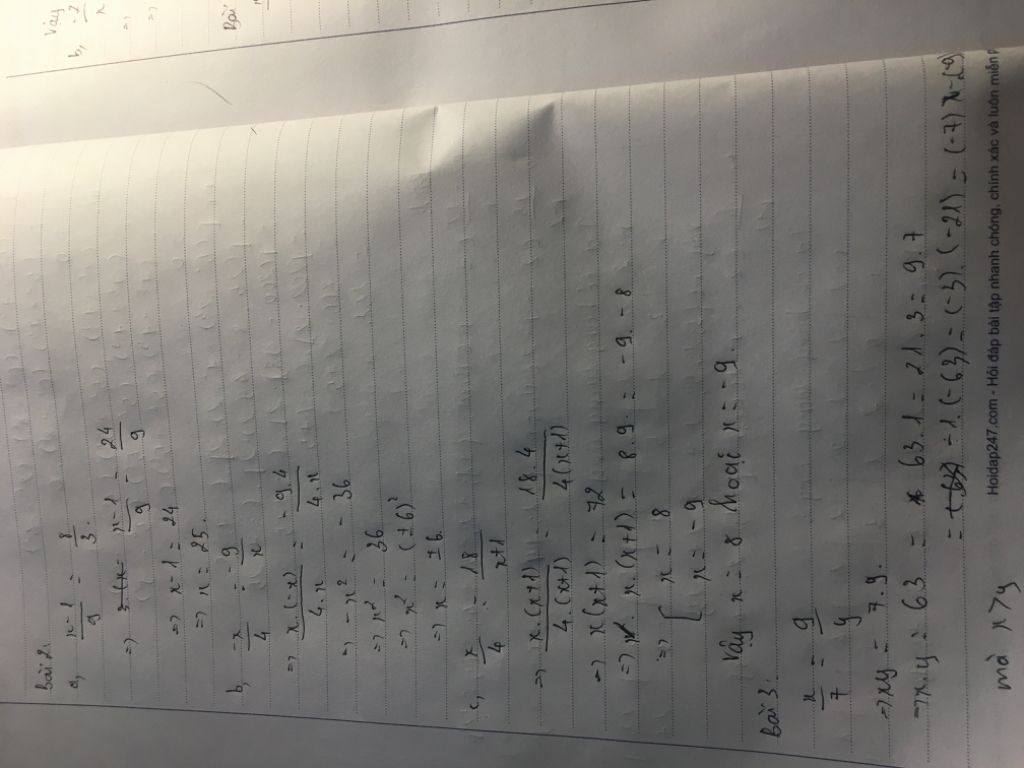 Bài 2:
a, x-1/9 = 8/3.
=> x-1/9 = 24/9
=> x-1 = 24
=> x = 25.
b, -x/4 = -9/x
=> x.(-x)/4.x = -9.4/4.x
=> -x² = -36
=> x² = 36
=> x² = (±6)²
=> x = ±6.
c, x/4 = 18/x+1
=> x.(x+1)/4.(x+1) = 18.4/4(x+1)
=> x(x+1) = 72
=> x.(x+1) = 8.9. = -9.-8
=> [ x = 8
x = -9
Vậy x = 8 hoặc x = -9.
Bài 3:
x/7 = 9/y
=> xy = 7.9.
=> x.y = 63 = 63.1 = 21.3 = 9.7
= -1.(-63) = (-3)(-21) = (-7)×(-9)
mà x > y
Hoidap247.com - Hỏi đáp bài tập nhanh chóng, chính xác và luôn miễn p
Vậy
b, -2/x
=>
=>
Bài